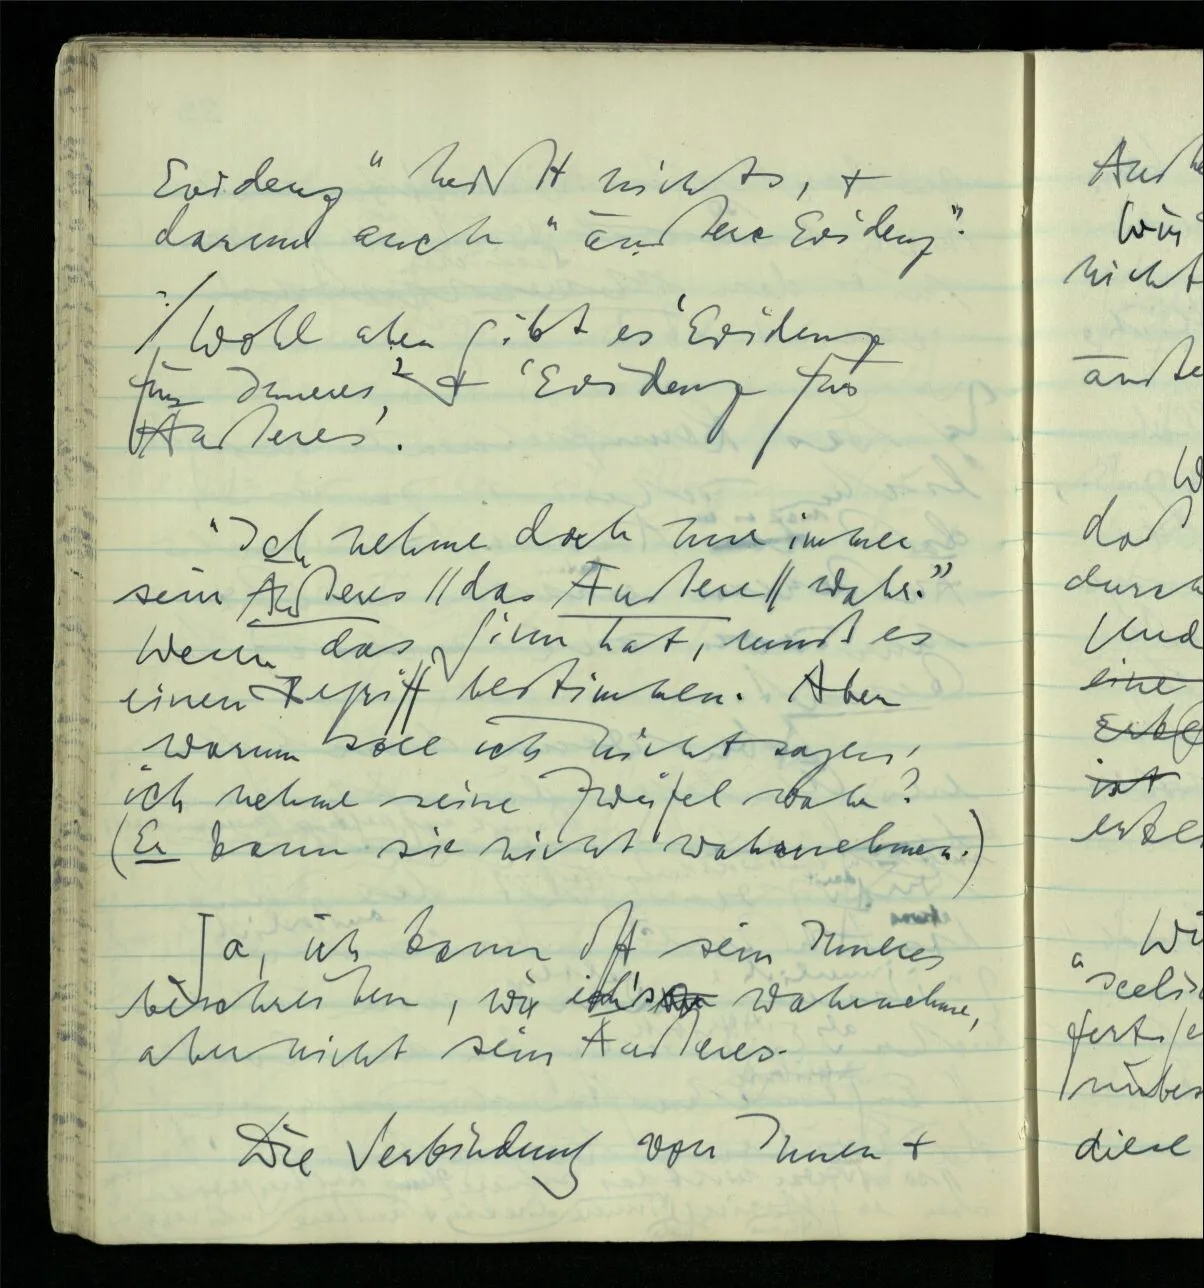 Evidenz" heißt nichts, +
darum auch "äußere Evidenz".
Wohl aber gibt es 'Evidenz
für Inneres' + 'Evidenz für
Äußeres'.
"Ich nehme doch nur immer
sein Äußeres // das Äußere // wahr."
Wenn das Sinn hat, muß es
einen Begriff bestimmen. Aber
warum soll ich nicht sagen,
ich nehme seine Zweifel wahr?
(Er kann sie nicht wahrnehmen.)
Ja, ich kann oft sein Inneres
beschreiben, wie ich's wahrnehme,
aber nicht sein Äußeres.
Die Verbindung von Innen +
Wir
nicht
äuße
daß
durch
Und
eine
ist
Wi
"seelis
diese